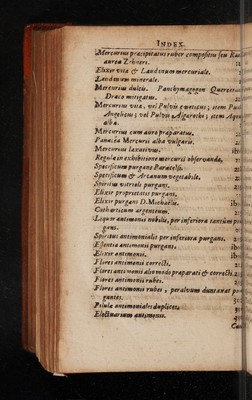 INDEX.
Mercurius præcipitatus ruber compositus seu
aurea Zibveri.
Elixir vitæ & Laudanum mercuriale.
Laudanum minerale.
Mercurius dulcis. Panchymagogon
Draco mitigatus.
Mercurius vitæ, vel Pulvis emeticus; item
Angelicus; vel Pulvis Algarothi; item
alba.
Mercurius cum auro præparatus.
Panacæa Mercurii alba vulgaris.
Mercurius laxativus. ib
Regulæ in exhibitione mercurii observandæ.
Specificum purgans Paracelsi.
Specificum & Arcanum vegetabile.
Spiritus vitrioli purgans.
Elixir proprietatis purgans.
Elixir purgans D. Michaelis. ib
Catharticum argenteum.
Liquor antimonii nobilis, per inferiora tantùm pur
gans.
Spiritus antimonialis per inferiora purgans.
Essentia antimonii purgans. ib
Elixir antimonii.
Flores antimonii correcti.
Flores antimonii alio modo præparati & correcti.
Flores antimonii rubei.
Flores antimonii rubei, per alvum duntaxat
gantes.
Pilulæ antimoniales duplices.
Electuarium antimonii.